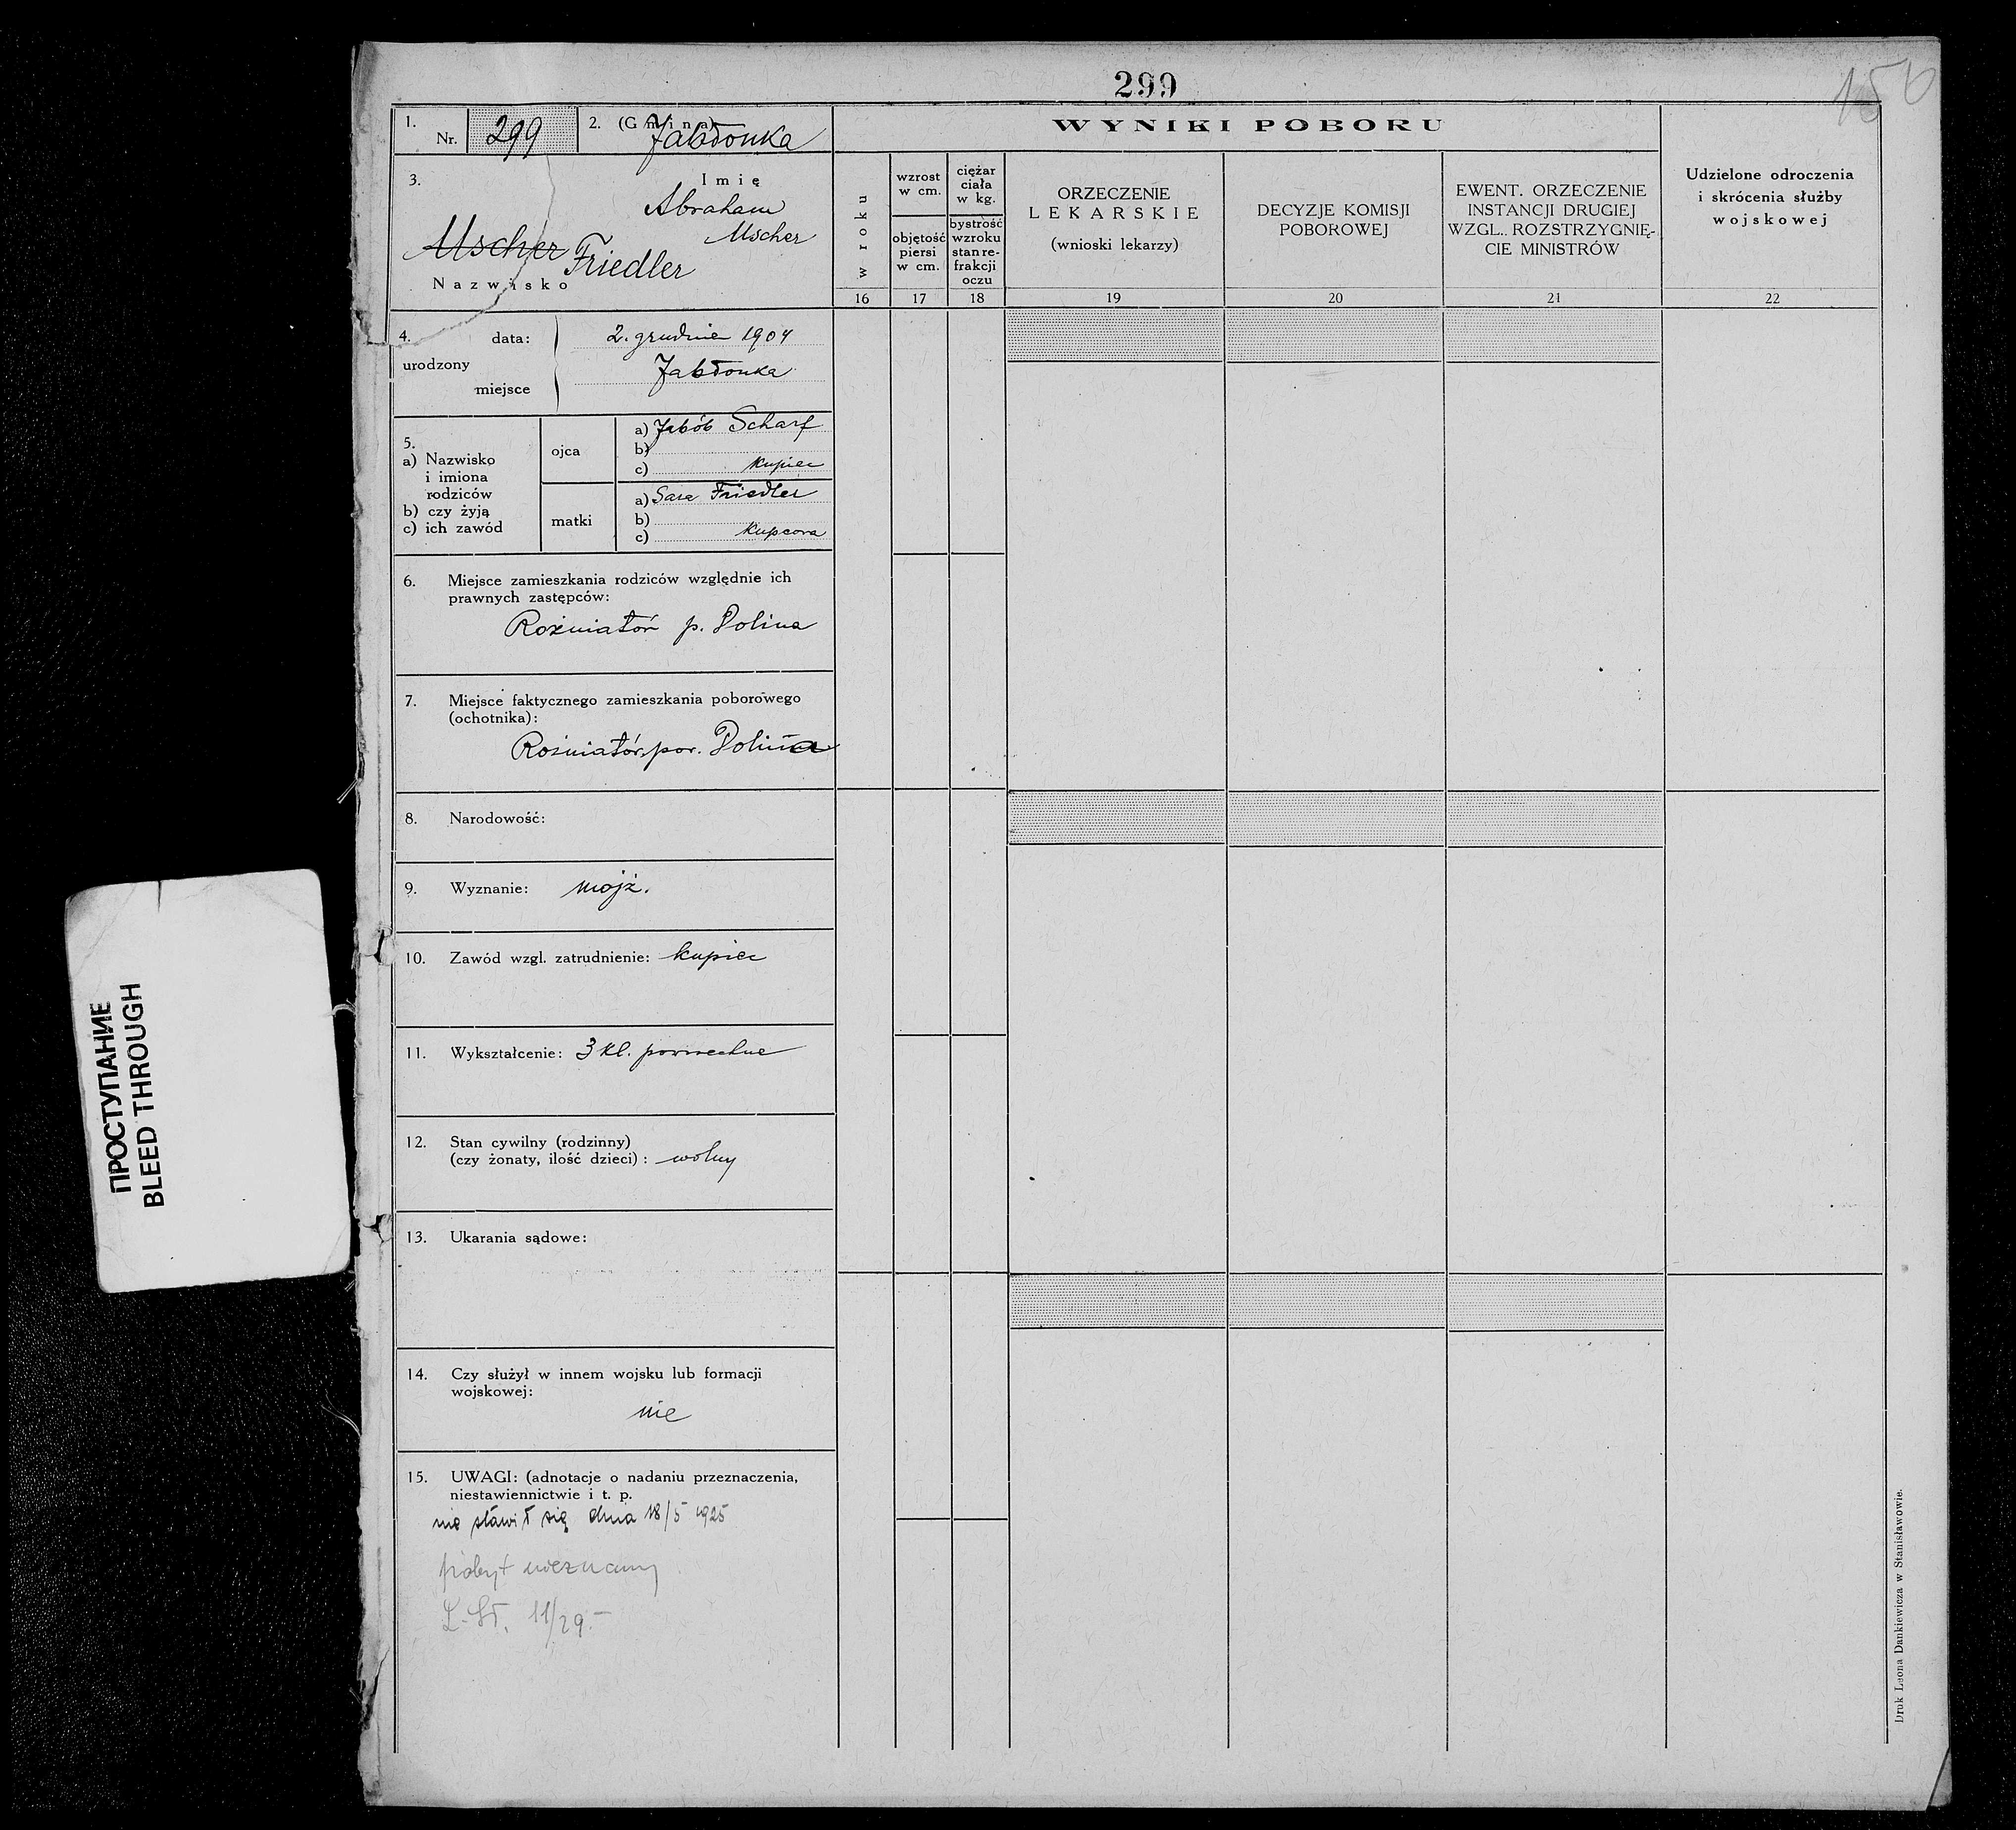 299
150
1.
Nr. 299
2. (Gmina) Jabłonka
3.
Imię
Abraham
Uscher
Uscher Friedler
Nazwisko
4. data: 2. grudnia 1904
urodzony
miejsce Jabłonka
5.
a) Nazwisko
i imiona
rodziców
b) czy żyją
c) ich zawód
ojca
a) Jakób Scharf
b)
c) kupiec
matki
a) Sara Friedler
b)
c) kupcowa
6. Miejsce zamieszkania rodziców względnie ich
prawnych zastępców:
Rożniatów p. Dolina
7. Miejsce faktycznego zamieszkania poborowego
(ochotnika):
Rożniatów, pow. Dolina
8. Narodowość:
9. Wyznanie: mojż.
10. Zawód wzgl. zatrudnienie: kupiec
11. Wykształcenie: 3 kl. powszechne
12. Stan cywilny (rodzinny)
(czy żonaty, ilość dzieci) : wolny
13. Ukarania sądowe:
14. Czy służył w innem wojsku lub formacji
wojskowej:
nie
15. UWAGI: (adnotacje o nadaniu przeznaczenia,
niestawiennictwie i t. p.
nie stawił się dnia 18/5 1925
pobyt nieznany
L. St. 11/29.-
WYNIKI POBORU
w roku
16
wzrost
w cm.
objętość
piersi
w cm.
17
ciężar
ciała
w kg.
bystrość
wzroku
stan re-
frakcji
oczu
18
ORZECZENIE
LEKARSKIE
(wnioski lekarzy)
19
DECYZJE KOMISJI
POBOROWEJ
20
EWENT. ORZECZENIE
INSTANCJI DRUGIEJ
WZGL. ROZSTRZYGNIĘ-
CIE MINISTRÓW
21
Udzielone odroczenia
i skrócenia służby
wojskowej
22
Druk Leona Dankiewicza w Stanisławowie.
ПРОСТУПАНИЕ
BLEED THROUGH